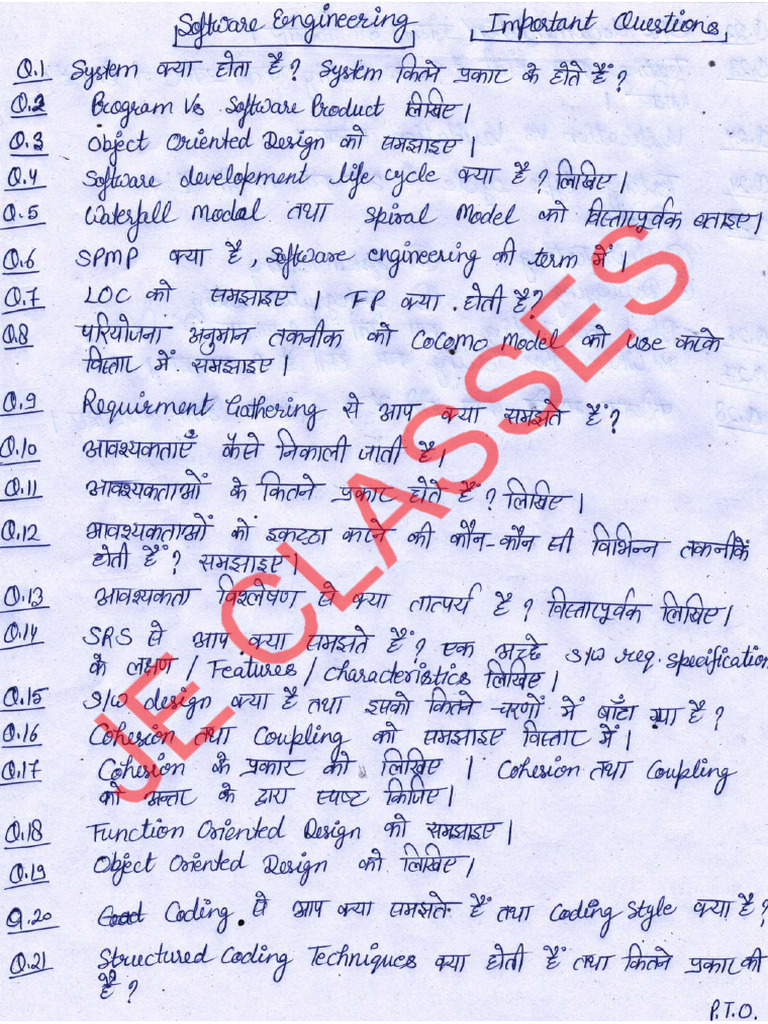 Software Engineering Important Questions
Q.1 System क्या होता है? System कितने प्रकार के होते हैं?
Q.2 Program Vs Software Product लिखिए।
Q.3 Object Oriented Design को समझाइए।
Q.4 Software development life cycle क्या है? लिखिए।
Q.5 Waterfall Modal तथा Spiral Model को विस्तारपूर्वक बताइए।
Q.6 SPMP क्या है, Software engineering की term में।
Q.7 LOC को समझाइए । FP क्या होती है?
Q.8 परियोजना अनुमान तकनीक को COCOMO Model को use करके
विस्तार में समझाइए।
Q.9 Requirment Gathering से आप क्या समझते हैं?
Q.10 आवश्यकताएँ कैसे निकाली जाती है।
Q.11 आवश्यकताओं के कितने प्रकार होते हैं? लिखिए।
Q.12 आवश्यकताओं को इकट्ठा करने की कौन-कौन सी विभिन्न तकनीकें
होती हैं? समझाइए।
Q.13 आवश्यकता विश्लेषण से क्या तात्पर्य है? विस्तारपूर्वक लिखिए।
Q.14 SRS से आप क्या समझते हैं? एक अच्छे S/W req. specification
के लक्षण / Features / characteristics लिखिए।
Q.15 S/W design क्या है तथा इसको कितने चरणों में बाँटा गया है?
Q.16 Cohesion तथा Coupling को समझाइए विस्तार में।
Q.17 Cohesion के प्रकार को लिखिए । Cohesion तथा Coupling
को अन्तर के द्वारा स्पष्ट किजिए।
Q.18 Function Oriented Design को समझाइए।
Q.19 Object Oriented Design को लिखिए।
Q.20 Coding से आप क्या समझते हैं तथा Coding Style क्या है?
Q.21 Structured Coding Techniques क्या होती हैं तथा कितने प्रकार की
है?
P.T.O.
JE CLASSES